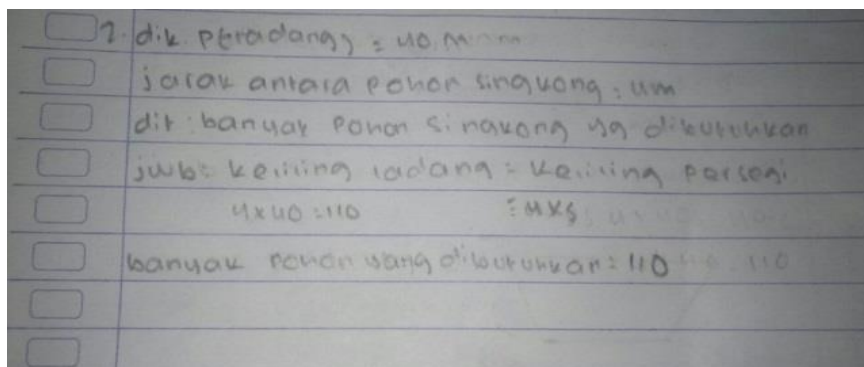 2. dik. Peradangg = 40 m
jarak antara pohon singkong : 4m
dit : banyak Pohon singkong yg dibutuhkan
jwb : keliling ladang = keliling persegi
4x40 = 110 = 4xs
banyak pohon yang dibutuhkan = 110